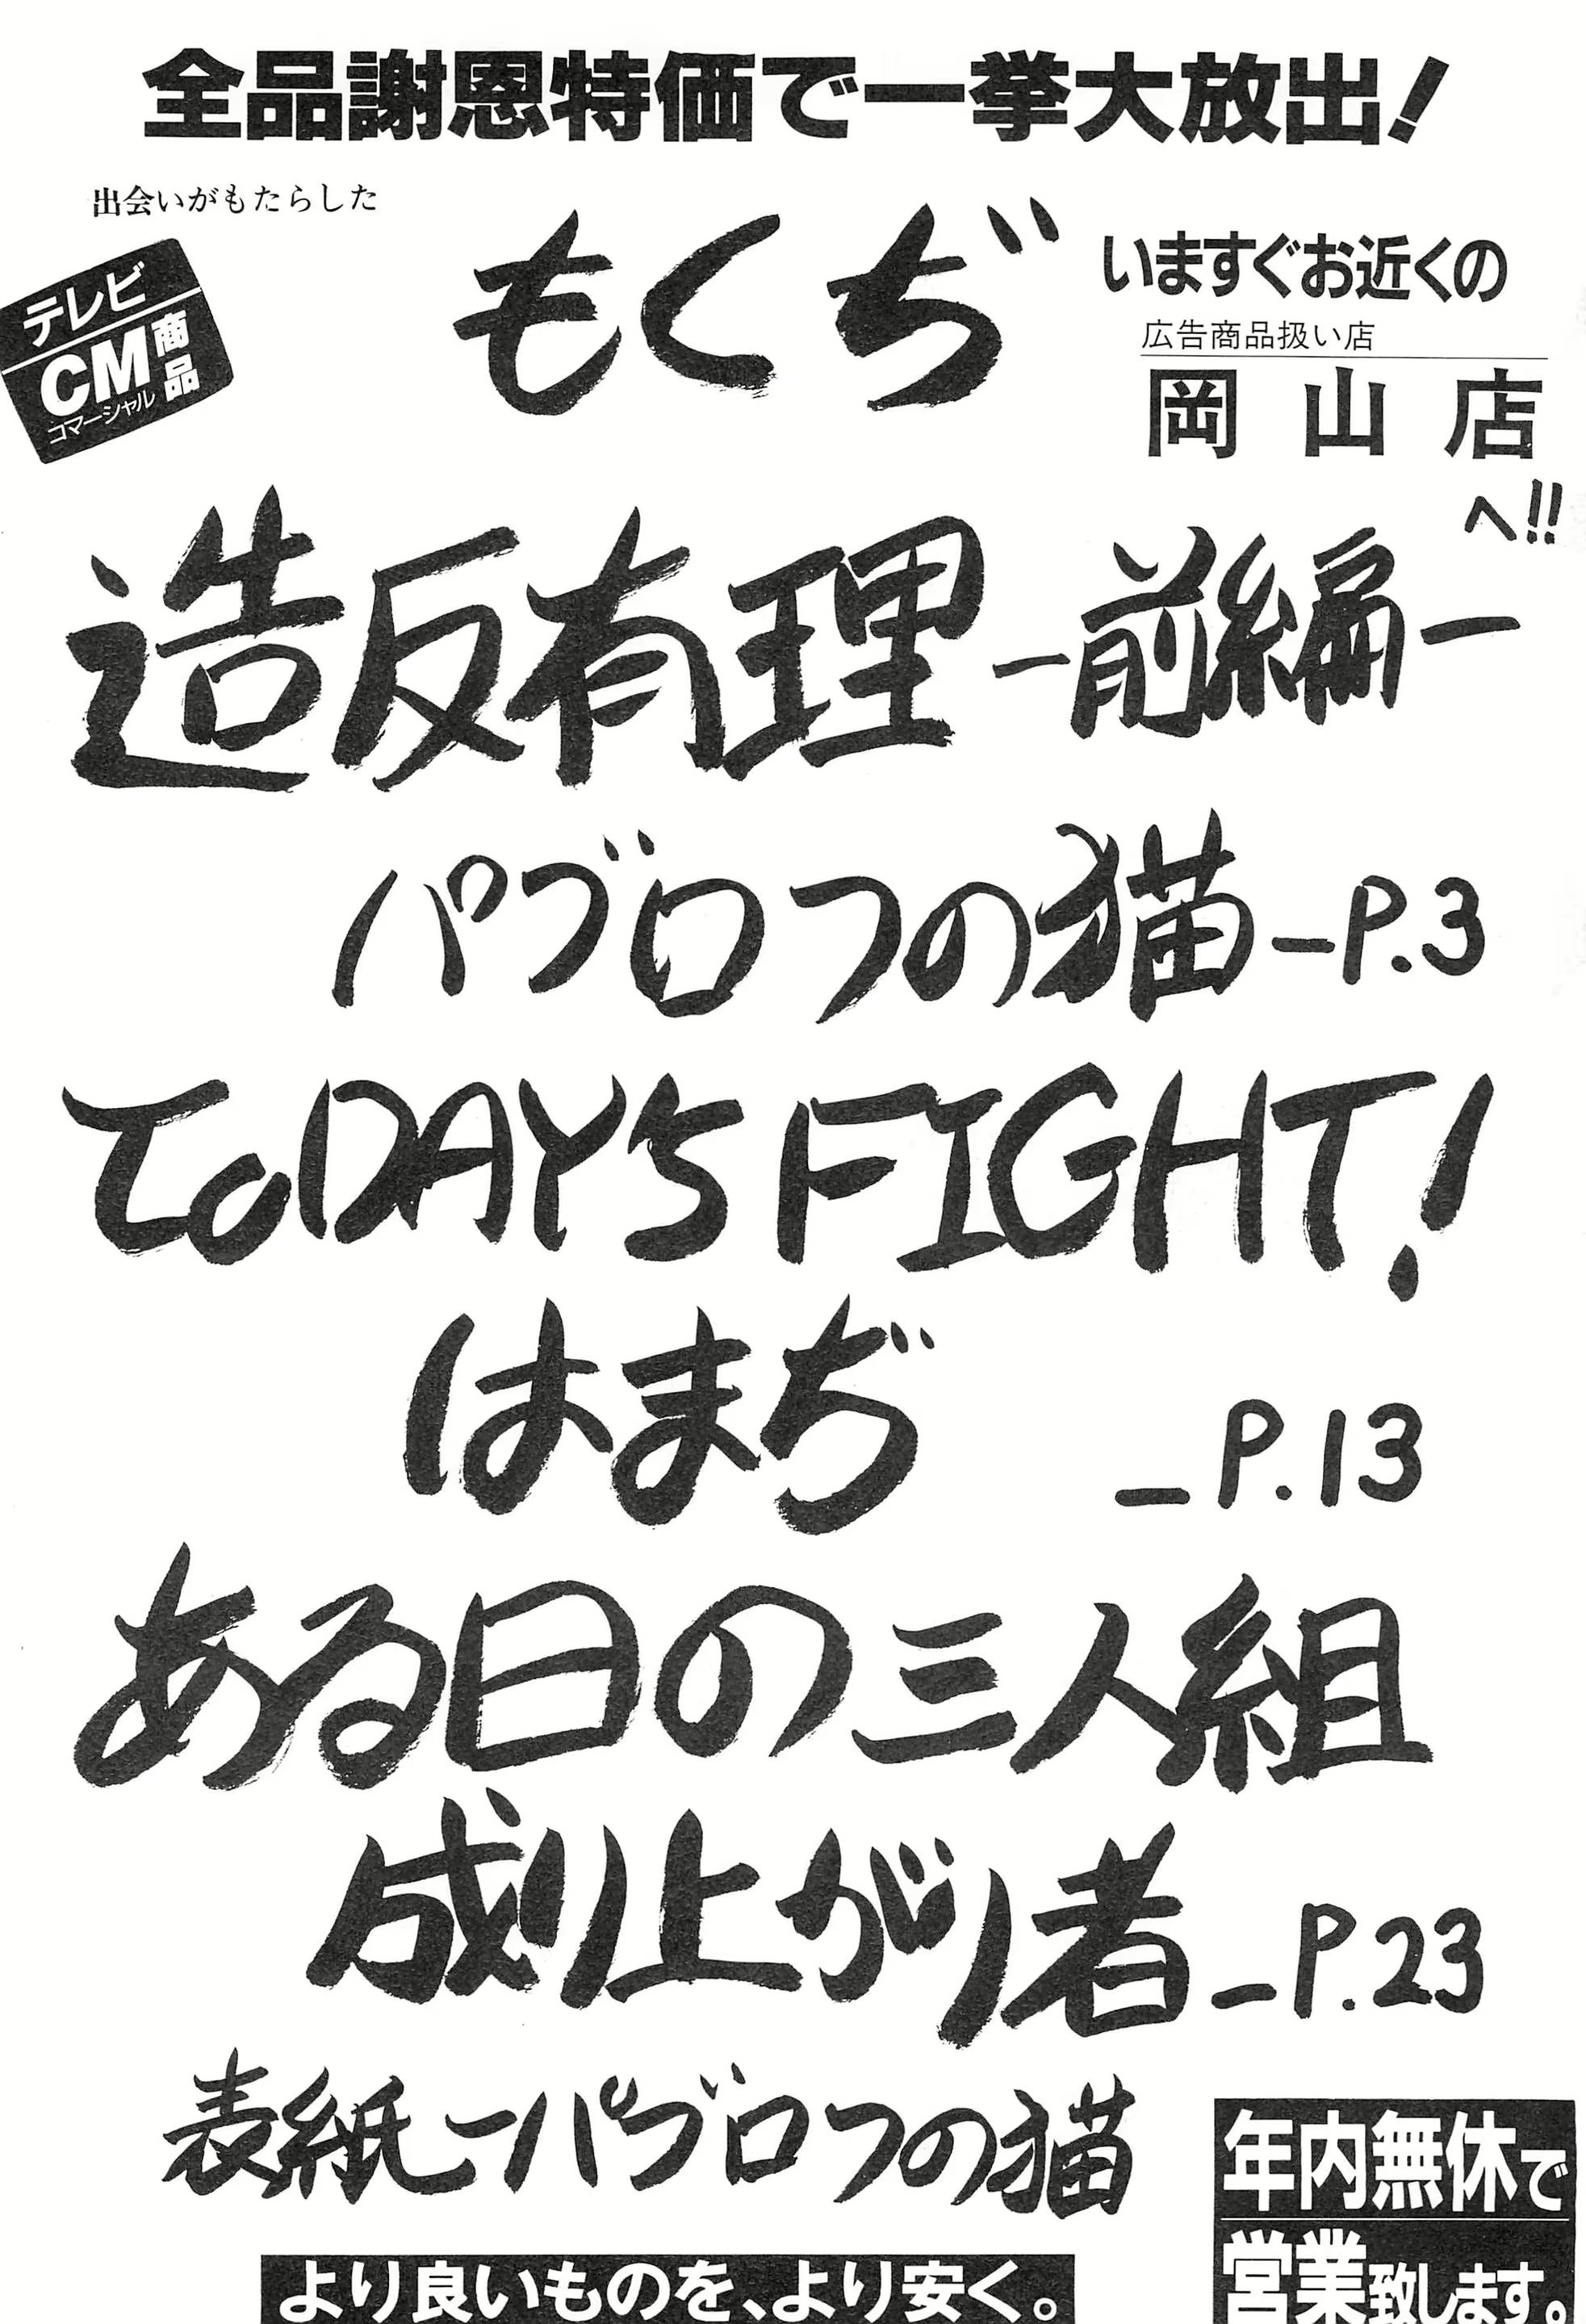 全品謝恩特価で一挙大放出!
出会いがもたらした
テレビ
CM商品
コマーシャル
もくぢ
いますぐお近くの
広告商品扱い店
岡山店
へ!!
造反有理 ー前編ー
パブロフの猫 ーP.3
ToDAY'S FIGHT!
はまぢ ーP.13
ある日の三人組
成り上がり者 ーP.23
表紙ーパブロフの猫
年内無休で
営業致します。
より良いものを、より安く。